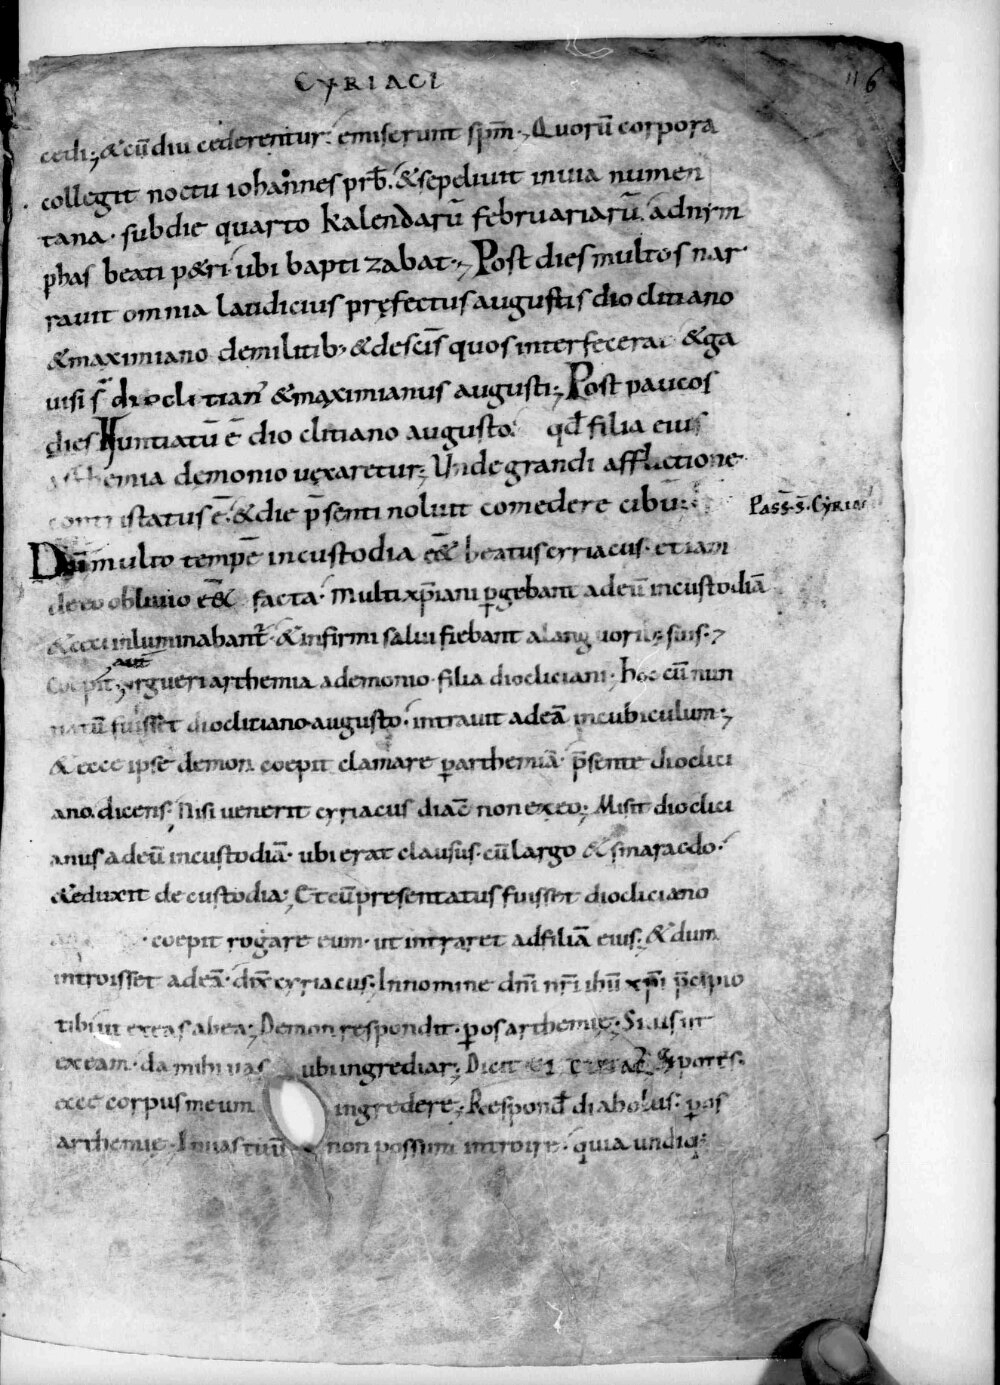 CYRIACI
116
cedi; & cū diu cederentur. emiserunt spm̄. Quorū corpora
collegit noctu iohannes prb̄. & sepeliuit inuia numen
tana. subdie quarto kalendarū februariarū. adnym
phas beati p&ri ubi baptizabat; Post dies multos nar
rauit omnia laudicius pręfectus augustis dioclitiano
& maximiano demilitib; & descīs quos interfecerat & ga
uisi s̄ dioclitian' & maximianus augusti; Post paucos
dies Nuntiatū ē dioclitiano augusto. qd̄ filia eius
arthemia demonio uexaretur; Unde grandi afflictione
contristatus ē. & die p̄senti noluit comedere cibū.
Pass̄. s̄. Cyriaci
Dū multo tempē incustodia ēē& beatus cyriacus. etiam
deeo obliuio ēē& facta. Multi xp̄iani p̱gebant adeū incustodiā
& ceci inluminabant᷑. & infirmi salui fiebant alanguorib; suis.
Coepit aut̄ urgueri arthemia ademonio. filia diocliciani. hoc cū nun
tiatū fuisset dioclitiano augusto. intrauit adeā incubiculum;
& ecce ipse demon coepit clamare p̱ arthemiā. p̄sente dioclici
ano. dicens. Nisi venerit cyriacus diac̄ non exeo; Misit dioclici
anus adeū incustodiā. ubi erat clausus. cū largo & smaracdo.
& eduxit de custodia; Et cū presentatus fuisset diocliciano
coepit rogare eum. ut intraret adfiliā eius; & dum
introisset adeā. dix̄ cyriacus. Innomine dn̄i nr̄i ihū xp̄i p̄cipio
tibi ut exeas abea; Demon respondit. p̱ os arthemię. Si uis ut
exeam. da mihi uas ubi ingrediar; Dicit ei cyriac' Si potes.
ecce corpus meum ingredere; Respond̄ diabolus. p̱ os
arthemię. Inuas tuū non possum introire. quia undiq;